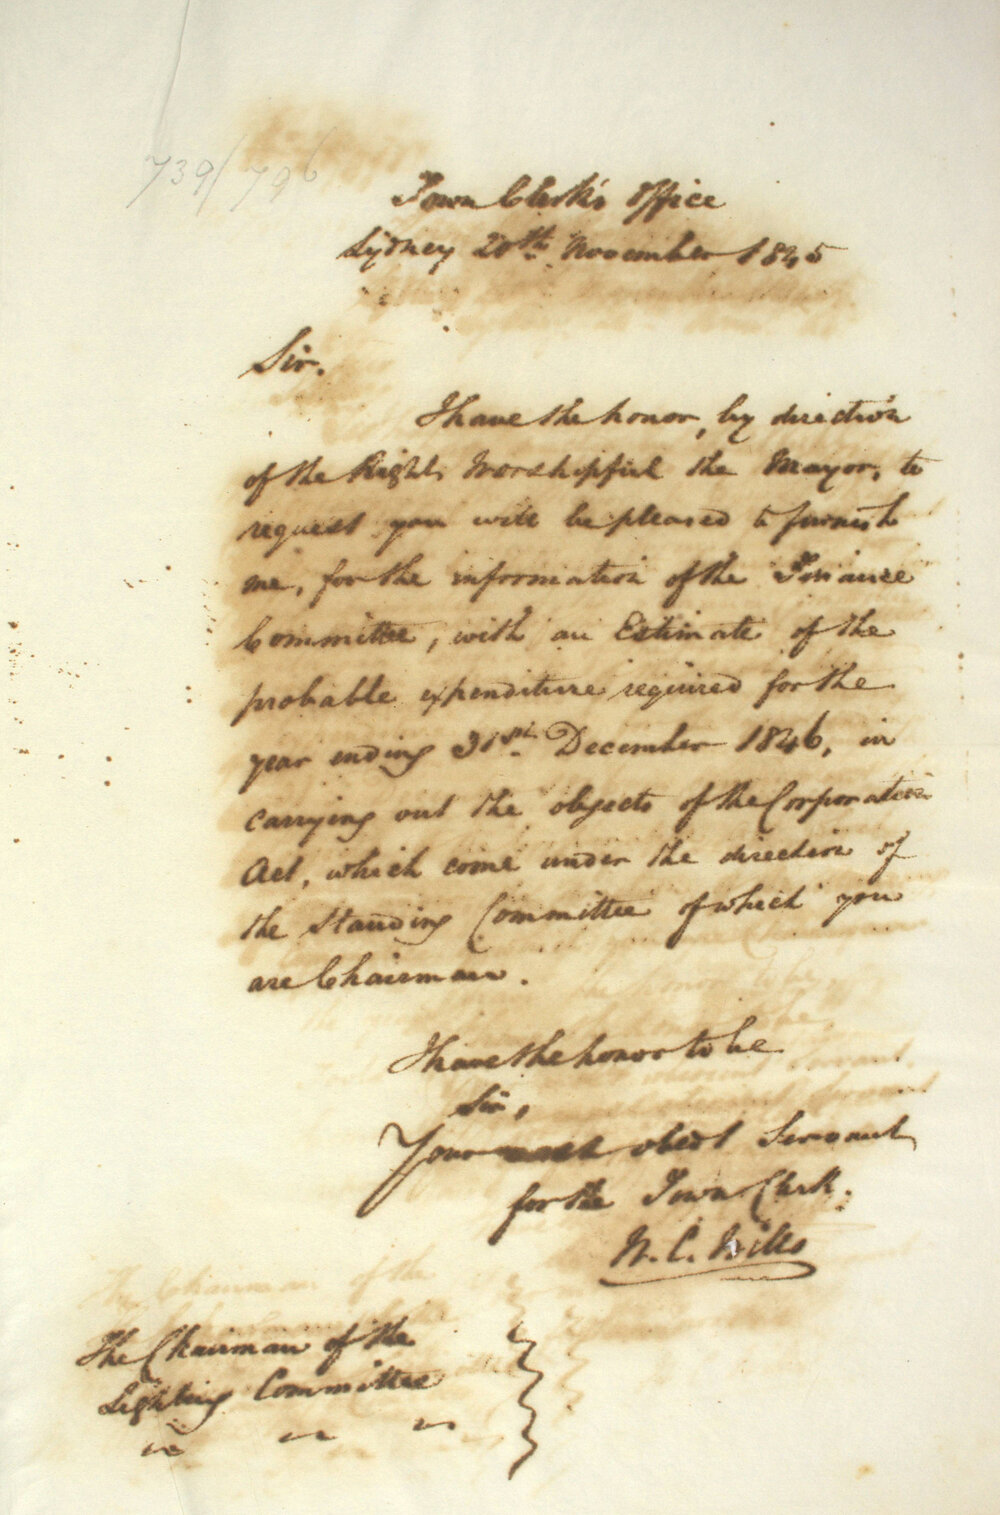 739/796
Town Clerk's Office
Sydney 20th November 1845
Sir.
I have the honor, by direction
of the Right Worshipful the Mayor, to
request you will be pleased to furnish
me, for the information of the Finance
Committee, with an Estimate of the
probable expenditure required for the
year ending 31st December 1846, in
carrying out the objects of the Corporation
Act, which come under the direction of
the Standing Committee of which you
are Chairman.
I have the honor to be
Sir,
Your most obedt Servant
for the Town Clerk.
W. C. Wills
The Chairman of the
Lighting Committee